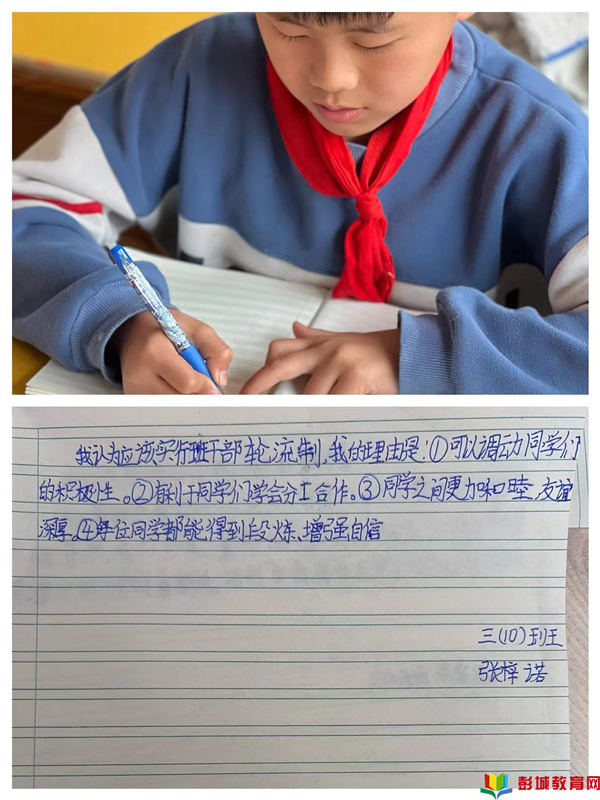 我认为应该实行班干部轮流制,我的理由是:①可以调动同学们
的积极性。②有利于同学们学会分工合作。③同学之间更加和睦,友谊
深厚。④每位同学都能得到段炼、增强自信
三(10)班王
张梓诺
彭城教育网